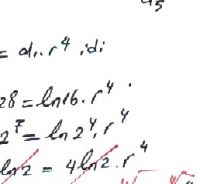 = a₁.r⁴ idi
28 = ln16.r⁴
2⁷ = ln2⁴.r⁴
ln2 = 4ln2.r⁴